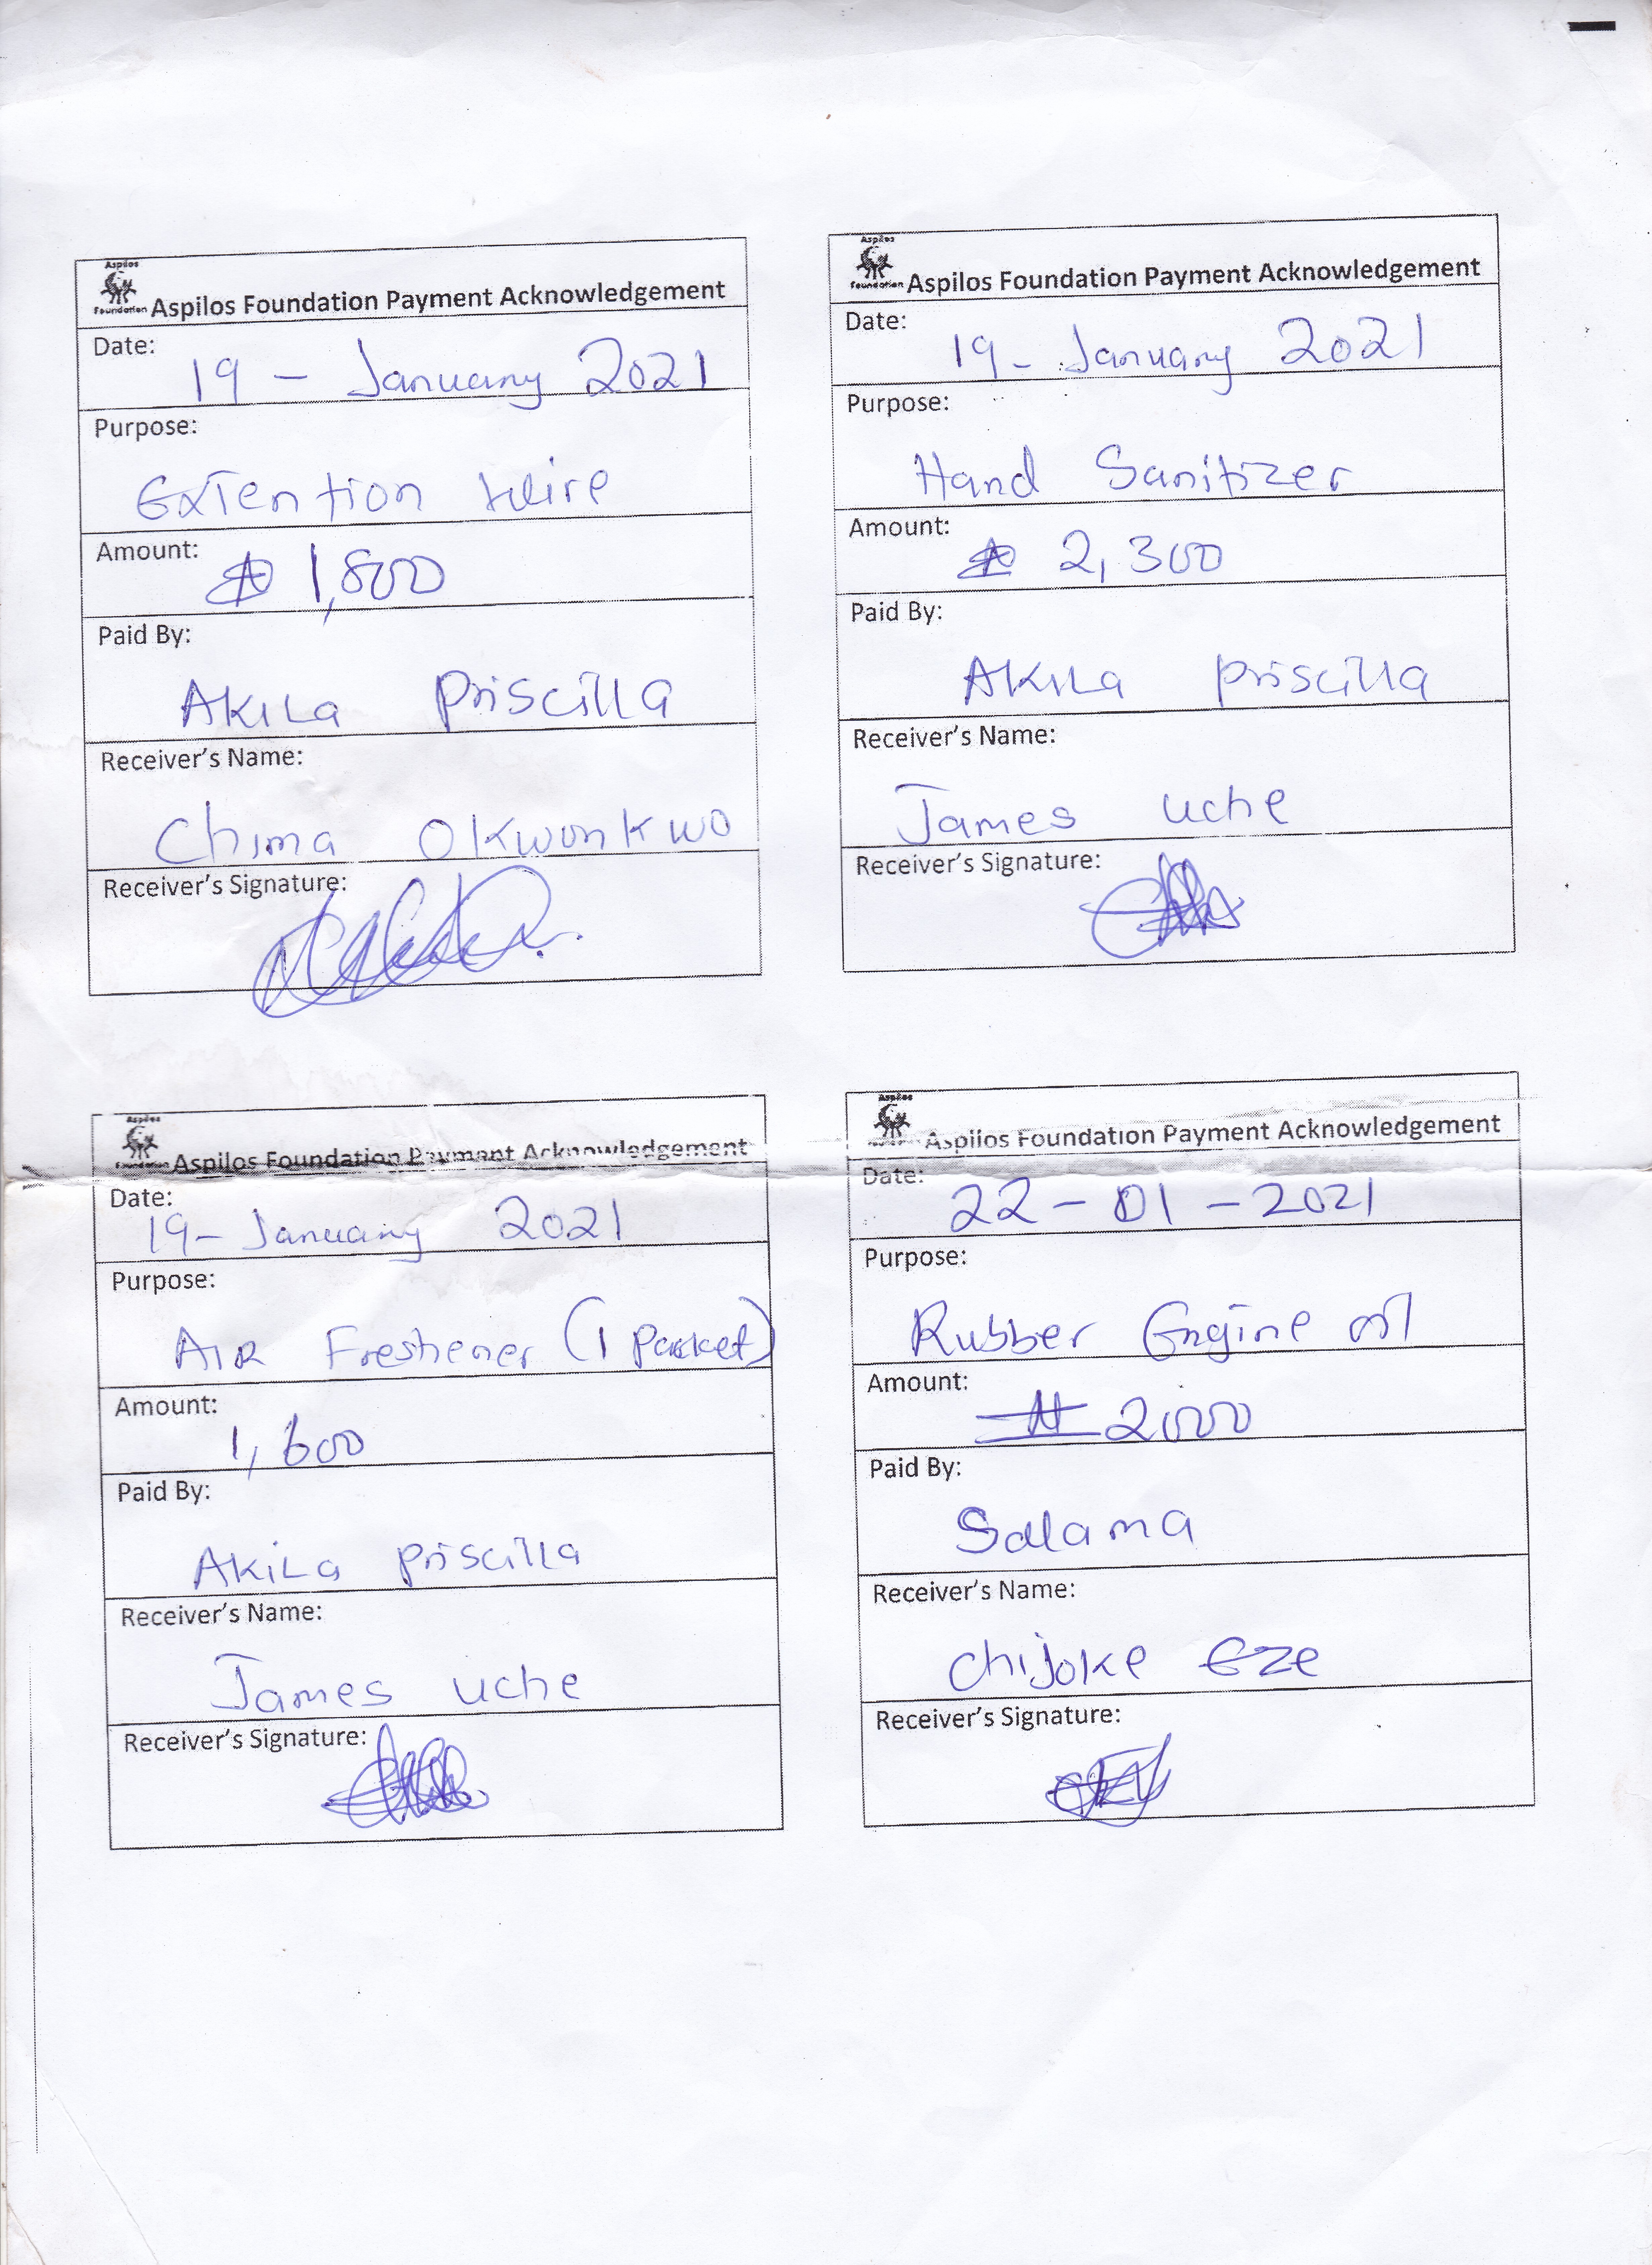 Aspilos
Foundation Aspilos Foundation Payment Acknowledgement
Date:
19 - January 2021
Purpose:
Extention Wire
Amount:
₦ 1,800
Paid By:
Akila Priscilla
Receiver's Name:
Chima Okwonkwo
Receiver's Signature:
Aspilos
Foundation Aspilos Foundation Payment Acknowledgement
Date:
19 - January 2021
Purpose:
Hand Sanitizer
Amount:
₦ 2,300
Paid By:
Akila Priscilla
Receiver's Name:
James Uche
Receiver's Signature:
Aspilos
Foundation Aspilos Foundation Payment Acknowledgement
Date:
19 - January 2021
Purpose:
Air Freshener (1 Packet)
Amount:
1,600
Paid By:
Akila Priscilla
Receiver's Name:
James Uche
Receiver's Signature:
Aspilos
Aspilos Foundation Payment Acknowledgement
Date:
22 - 01 - 2021
Purpose:
Rubber Engine oil
Amount:
₦ 2,000
Paid By:
Salama
Receiver's Name:
Chijoke Eze
Receiver's Signature: